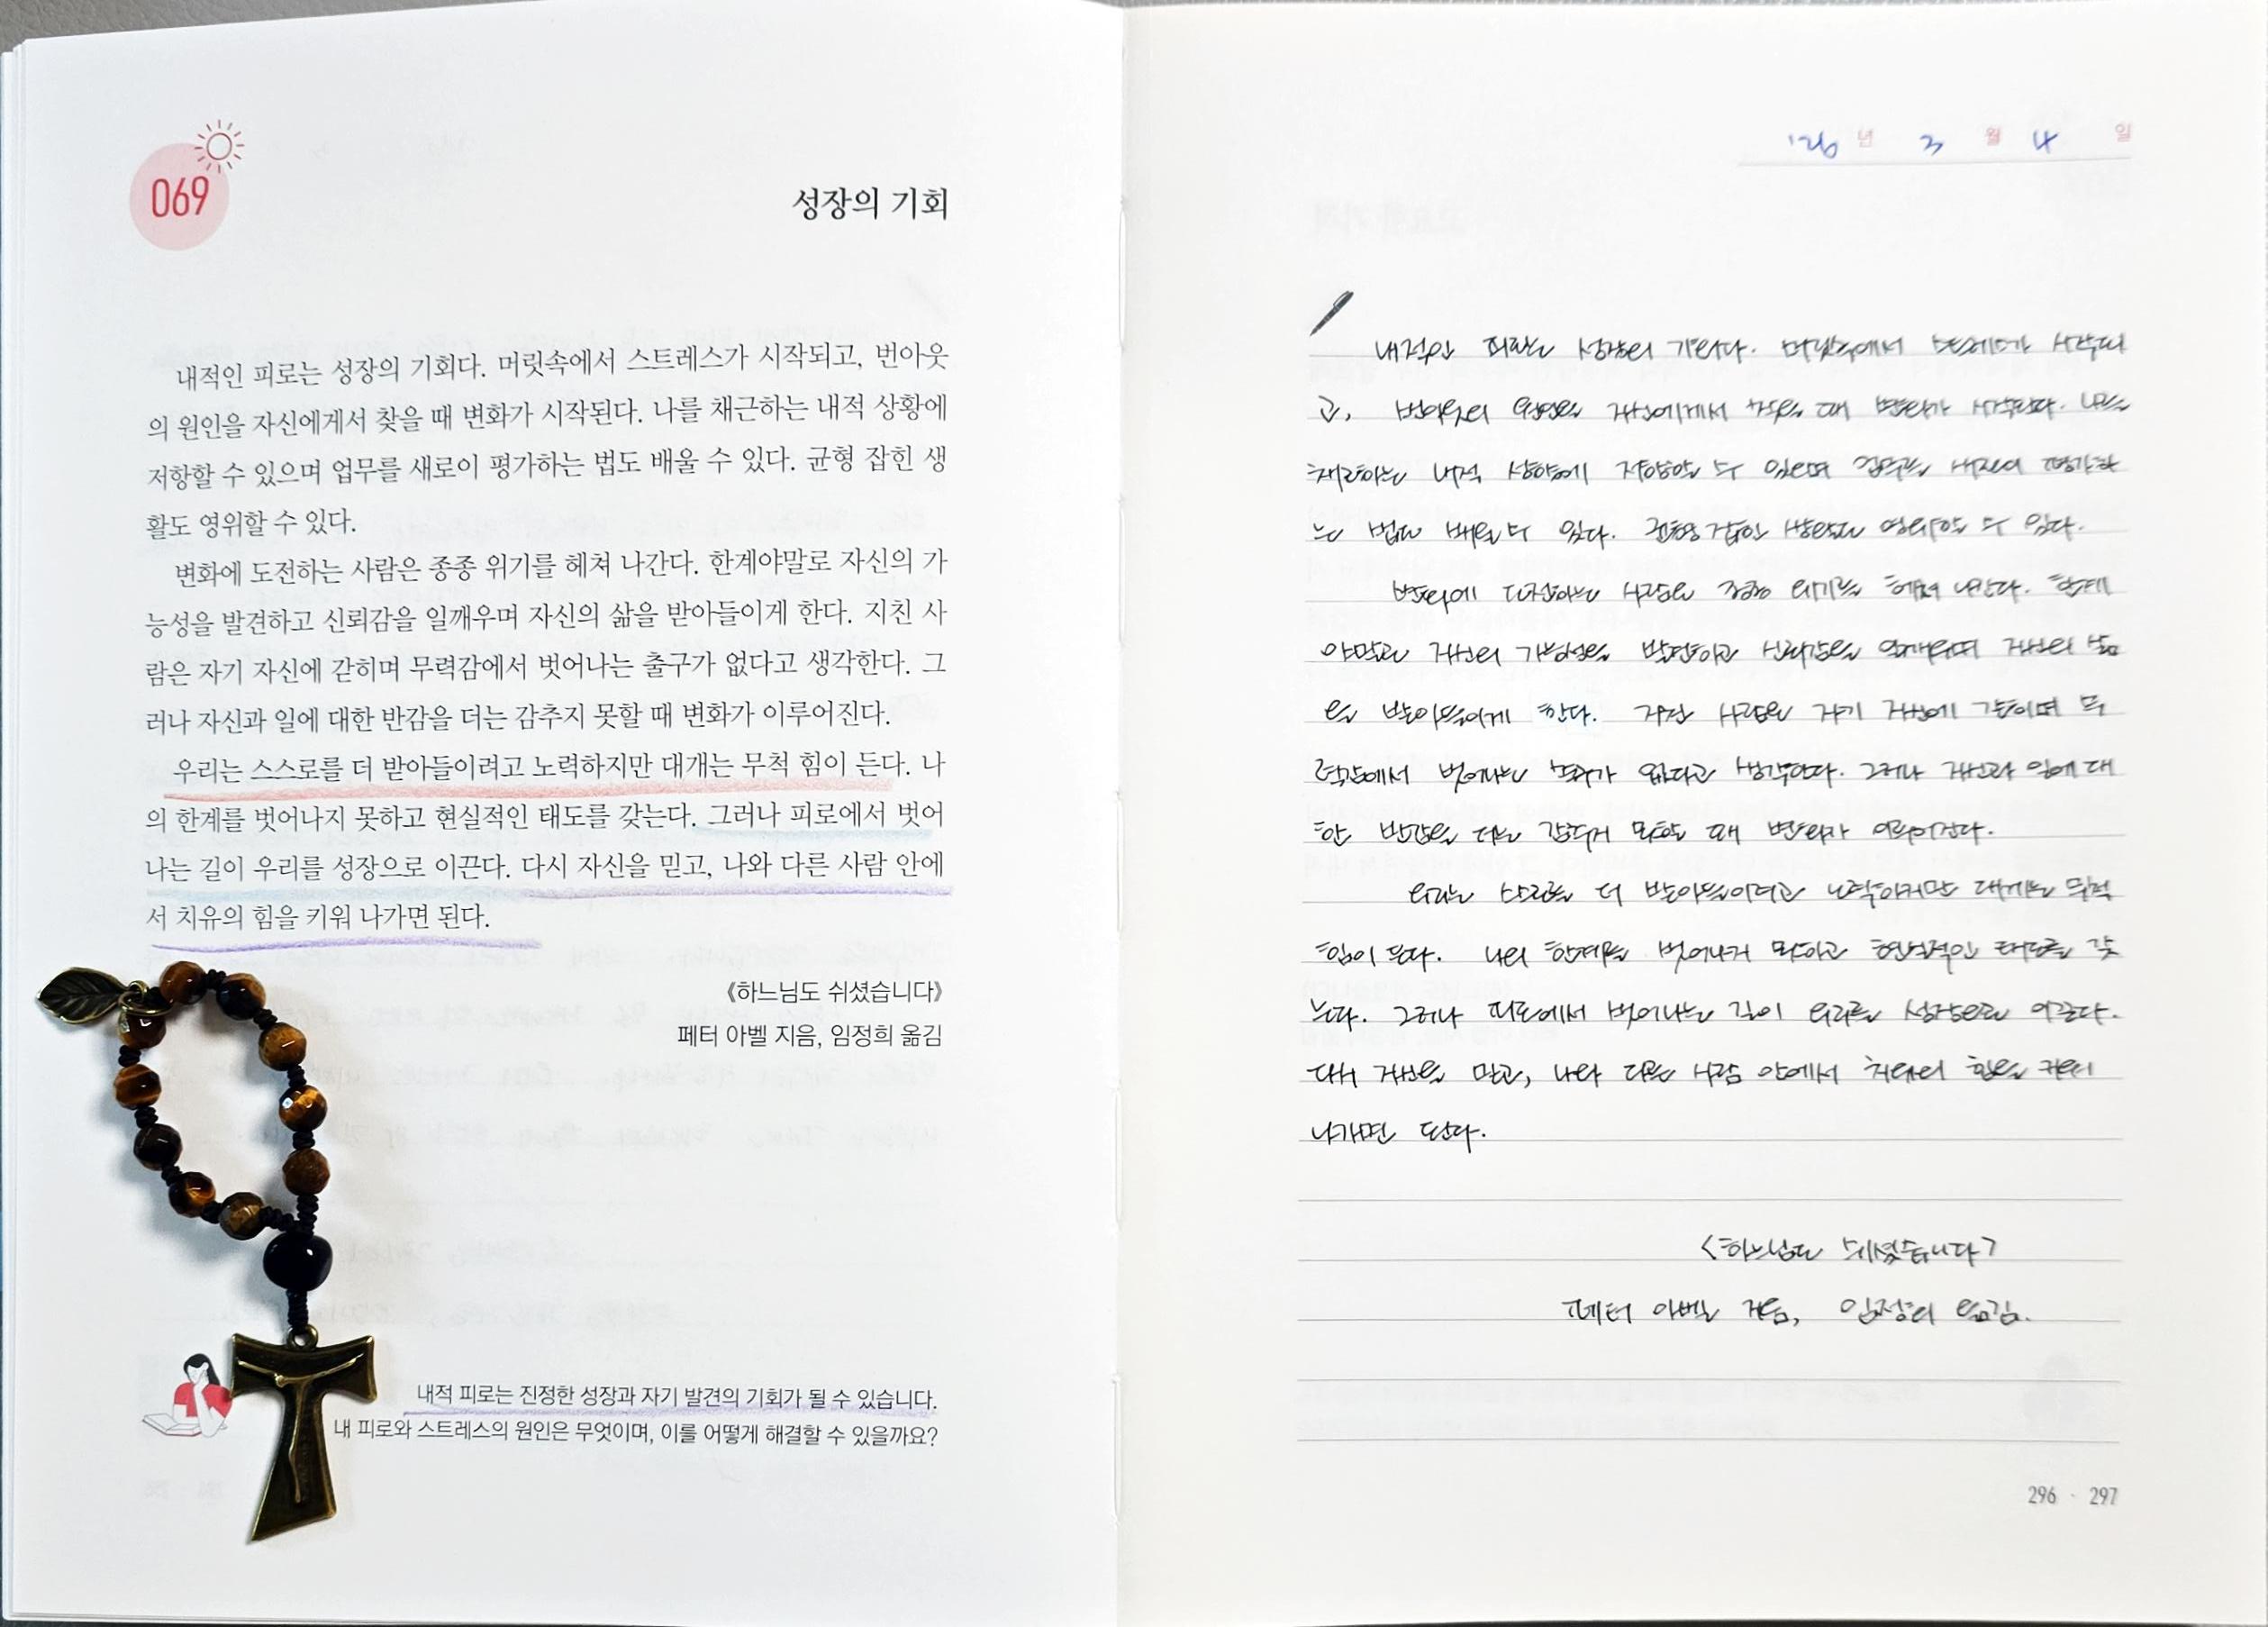 069
성장의 기회
내적인 피로는 성장의 기회다. 머릿속에서 스트레스가 시작되고, 번아웃
의 원인을 자신에게서 찾을 때 변화가 시작된다. 나를 채근하는 내적 상황에
저항할 수 있으며 업무를 새로이 평가하는 법도 배울 수 있다. 균형 잡힌 생
활도 영위할 수 있다.
변화에 도전하는 사람은 종종 위기를 헤쳐 나간다. 한계야말로 자신의 가
능성을 발견하고 신뢰감을 일깨우며 자신의 삶을 받아들이게 한다. 지친 사
람은 자기 자신에 갇히며 무력감에서 벗어나는 출구가 없다고 생각한다. 그
러나 자신과 일에 대한 반감을 더는 감추지 못할 때 변화가 이루어진다.
우리는 스스로를 더 받아들이려고 노력하지만 대개는 무척 힘이 든다. 나
의 한계를 벗어나지 못하고 현실적인 태도를 갖는다. 그러나 피로에서 벗어
나는 길이 우리를 성장으로 이끈다. 다시 자신을 믿고, 나와 다른 사람 안에
서 치유의 힘을 키워 나가면 된다.
《하느님도 쉬셨습니다》
페터 아벨 지음, 임정희 옮김
내적 피로는 진정한 성장과 자기 발견의 기회가 될 수 있습니다.
내 피로와 스트레스의 원인은 무엇이며, 이를 어떻게 해결할 수 있을까요?
'26 년 3 월 4 일
내적인 피로는 성장의 기회다. 머릿속에서 스트레스가 시작되
고, 번아웃의 원인을 자신에게서 찾을 때 변화가 시작된다. 나를
채근하는 내적 상황에 저항할 수 있으며 업무를 새로이 평가하
는 법도 배울 수 있다. 균형 잡힌 생활도 영위할 수 있다.
변화에 도전하는 사람은 종종 위기를 헤쳐 나간다. 한계
야말로 자신의 가능성을 발견하고 신뢰감을 일깨우며 자신의 삶
을 받아들이게 한다. 지친 사람은 자기 자신에 갇히며 무
력감에서 벗어나는 출구가 없다고 생각한다. 그러나 자신과 일에 대
한 반감을 더는 감추지 못할 때 변화가 이루어진다.
우리는 스스로를 더 받아들이려고 노력하지만 대개는 무척
힘이 든다. 나의 한계를 벗어나지 못하고 현실적인 태도를 갖
는다. 그러나 피로에서 벗어나는 길이 우리를 성장으로 이끈다.
다시 자신을 믿고, 나와 다른 사람 안에서 치유의 힘을 키워
나가면 된다.
<하느님도 쉬셨습니다>
페터 아벨 지음, 임정희 옮김.
296 · 297